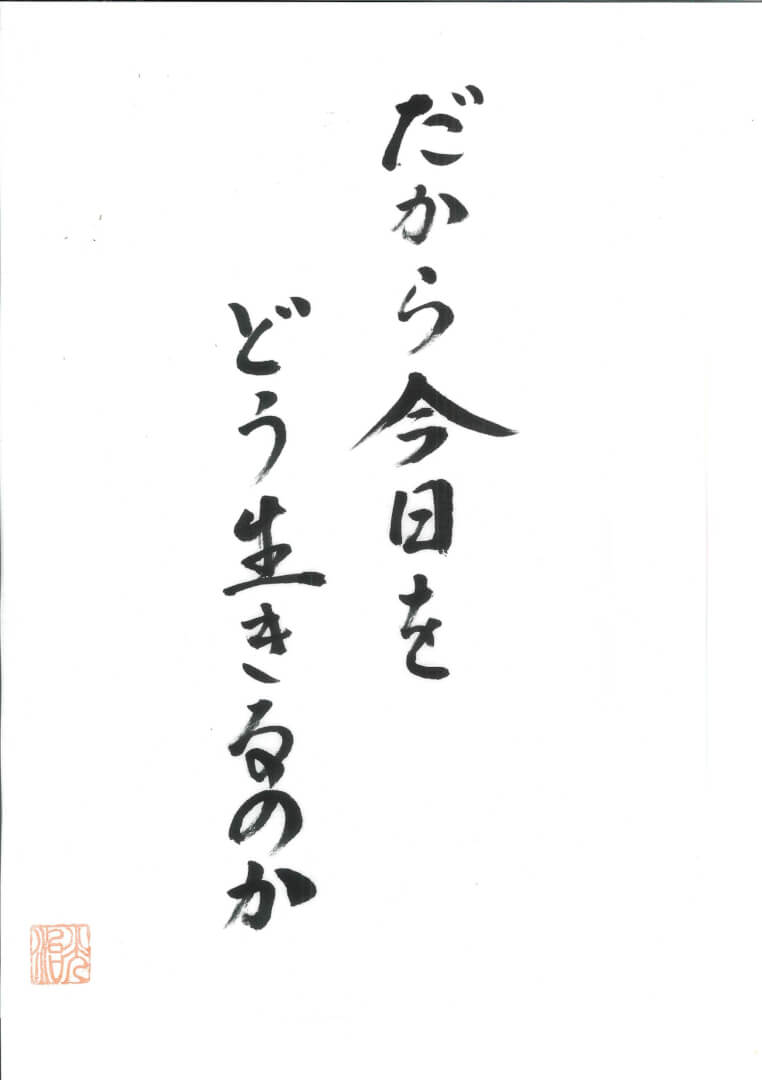 だから今日を
どう生きるのか